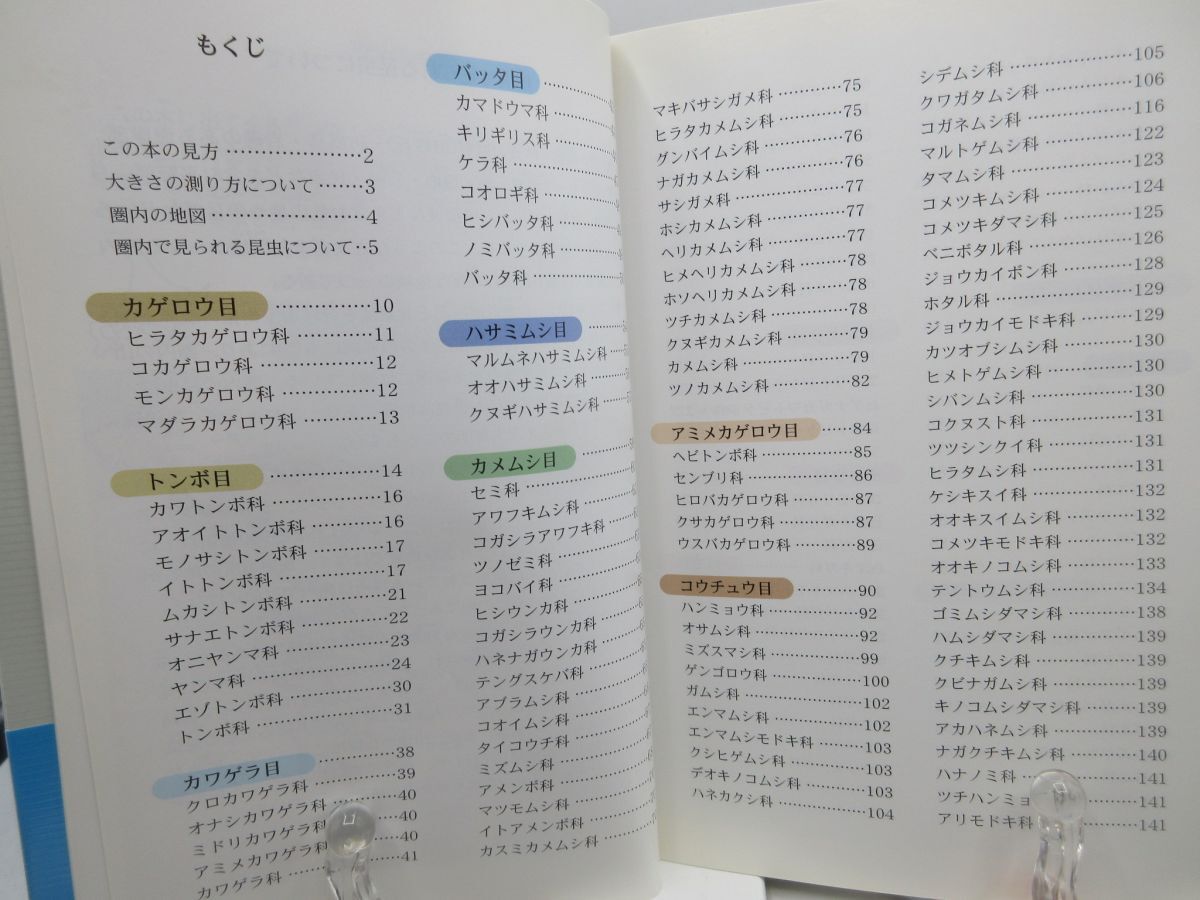 もくじ
この本の見方…………………2
大きさの測り方について……3
圏内の地図……………………4
圏内で見られる昆虫について‥5
カゲロウ目……………10
ヒラタカゲロウ科…………11
コカゲロウ科………………12
モンカゲロウ科……………12
マダラカゲロウ科…………13
トンボ目………………14
カワトンボ科………………16
アオイトトンボ科…………16
モノサシトンボ科…………17
イトトンボ科………………17
ムカシトンボ科……………21
サナエトンボ科……………22
オニヤンマ科………………23
ヤンマ科……………………24
エゾトンボ科………………30
トンボ科……………………31
カワゲラ目……………38
クロカワゲラ科……………39
オナシカワゲラ科…………40
ミドリカワゲラ科…………40
アミメカワゲラ科…………40
カワゲラ科…………………41
バッタ目
カマドウマ科
キリギリス科
ケラ科
コオロギ科
ヒシバッタ科
ノミバッタ科
バッタ科
ハサミムシ目
マルムネハサミムシ科
オオハサミムシ科
クヌギハサミムシ科
カメムシ目
セミ科
アワフキムシ科
コガシラアワフキ科
ツノゼミ科
ヨコバイ科
ヒシウンカ科
コガシラウンカ科
ハネナガウンカ科
テングスケバ科
アブラムシ科
コオイムシ科
タイコウチ科
ミズムシ科
アメンボ科
マツモムシ科
イトアメンボ科
カスミカメムシ科
マキバサシガメ科…………75
ヒラタカメムシ科…………75
グンバイムシ科……………76
ナガカメムシ科……………76
サシガメ科…………………77
ホシカメムシ科……………77
ヘリカメムシ科……………77
ヒメヘリカメムシ科………78
ホソヘリカメムシ科………78
ツチカメムシ科……………78
クヌギカメムシ科…………79
カメムシ科…………………79
ツノカメムシ科……………82
アミメカゲロウ目……84
ヘビトンボ科………………85
センブリ科…………………86
ヒロバカゲロウ科…………87
クサカゲロウ科……………87
ウスバカゲロウ科…………89
コウチュウ目…………90
ハンミョウ科………………92
オサムシ科…………………92
ミズスマシ科………………99
ゲンゴロウ科………………100
ガムシ科……………………102
エンマムシ科………………102
エンマムシモドキ科………103
クシヒゲムシ科……………103
デオキノコムシ科…………103
ハネカクシ科………………104
シデムシ科…………………105
クワガタムシ科……………106
コガネムシ科………………116
マルトゲムシ科……………122
タマムシ科…………………123
コメツキムシ科……………124
コメツキダマシ科…………125
ベニボタル科………………126
ジョウカイボン科…………128
ホタル科……………………129
ジョウカイモドキ科………129
カツオブシムシ科…………130
ヒメトゲムシ科……………130
シバンムシ科………………130
コクヌスト科………………131
ツツシンクイ科……………131
ヒラタムシ科………………131
ケシキスイ科………………132
オオキスイムシ科…………132
コメツキモドキ科…………132
オオキノコムシ科…………133
テントウムシ科……………134
ゴミムシダマシ科…………138
ハムシダマシ科……………139
クチキムシ科………………139
クビナガムシ科……………139
キノコムシダマシ科………139
アカハネムシ科……………139
ナガクチキムシ科…………140
ハナノミ科…………………141
ツチハンミョ…………141
アリモドキ科………………141